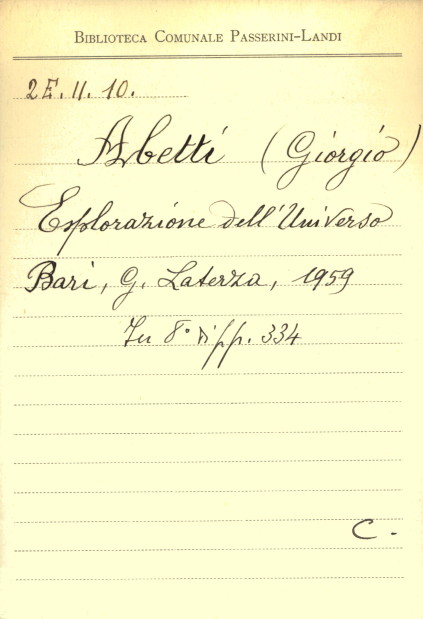 BIBLIOTECA COMUNALE PASSERINI-LANDI
2E. II. 10.
Abetti (Giorgio)
Esplorazione dell'Universo
Bari, G. Laterza, 1959
In 8° di pp. 334
C -